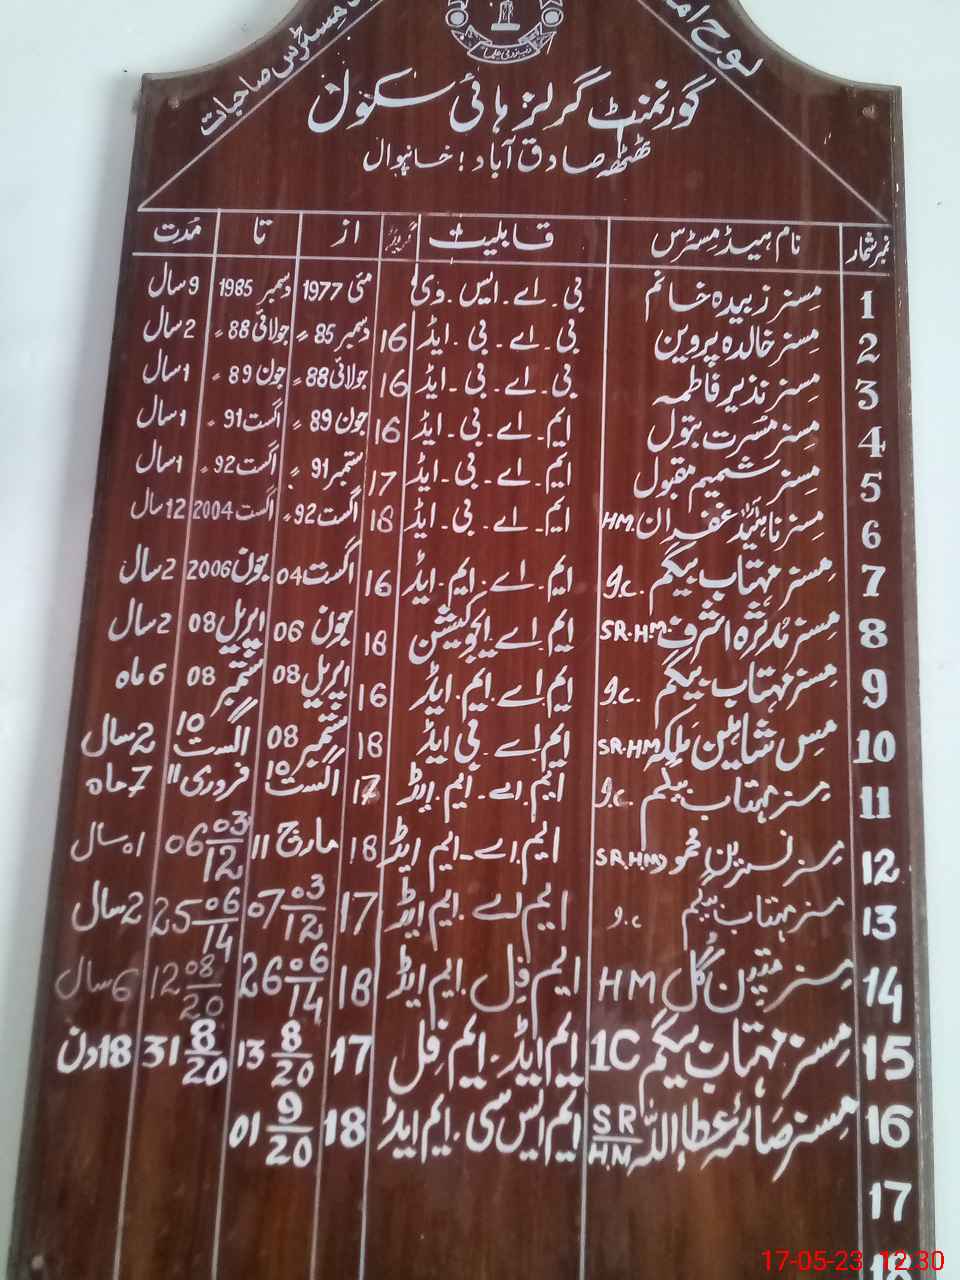 لوح
ہیڈ مسٹرس صاحبات
گورنمنٹ گرلز ہائی سکول
ٹھٹھہ صادق آباد ! خانیوال
نمبرشمار نام ہیڈمسٹرس قابلیت گریڈ از تا مُدت
1 مسنز زبیدہ خانم بی۔اے۔ایس۔وی مئی 1977 دسمبر 1985 9 سال
2 مسنز خالدہ پروین بی۔اے۔بی۔ایڈ 16 دسمبر 85ء جولائی 88ء 2 سال
3 مسنز نذیر فاطمہ بی۔اے۔بی۔ایڈ 16 جولائی 88ء جون 89ء 1 سال
4 مسنز مسرت بتول ایم۔اے۔بی۔ایڈ 16 جون 89ء اگست 91ء 1 سال
5 مسنز شمیم مقبول ایم۔اے۔بی۔ایڈ 17 ستمبر 91ء اگست 92ء 1 سال
6 مسنز ناہید غفران HM. ایم۔اے۔بی۔ایڈ 18 اگست 92ء اگست 2004 12 سال
7 مسنز مہتاب بیگم I.C. ایم۔اے۔ایم۔ایڈ 16 اگست 04 جون 2006 2 سال
8 مسنز مدثرہ اشرف SR.H.M. ایم اے۔ایجوکیشن 18 جون 06 اپریل 08 2 سال
9 مسنز مہتاب بیگم I.C. ایم۔اے۔ایم۔ایڈ 16 اپریل 08 ستمبر 08 6 ماہ
10 مس شاہین ملکہ SR.HM ایم۔اے۔بی ایڈ 18 ستمبر 08 اگست 10 2 سال
11 مسنز مہتاب بیگم I.C. ایم۔اے۔ایم۔ایڈ 17 اگست 10 فروری 11 7 ماہ
12 مسنز نسرین محمود (SR.HM) ایم۔اے۔ایم ایڈ 18 مارچ 11 06 03/12 01 سال
13 مسنز مہتاب بیگم I.C ایم اے۔ایم ایڈ 17 07 03/12 25 06/14 2 سال
14 مسنز گل HM ایم فل۔ایم ایڈ 18 26 06/14 12 08/20 6 سال
15 مسنز مہتاب بیگم 1C ایم ایڈ۔ایم فل 17 13 8/20 31 8/20 18 دن
16 مسنز صائمہ عطاءاللہ SR/H.M ایم ایس سی۔ایم ایڈ 18 01 9/20
17
17-05-23 12:30